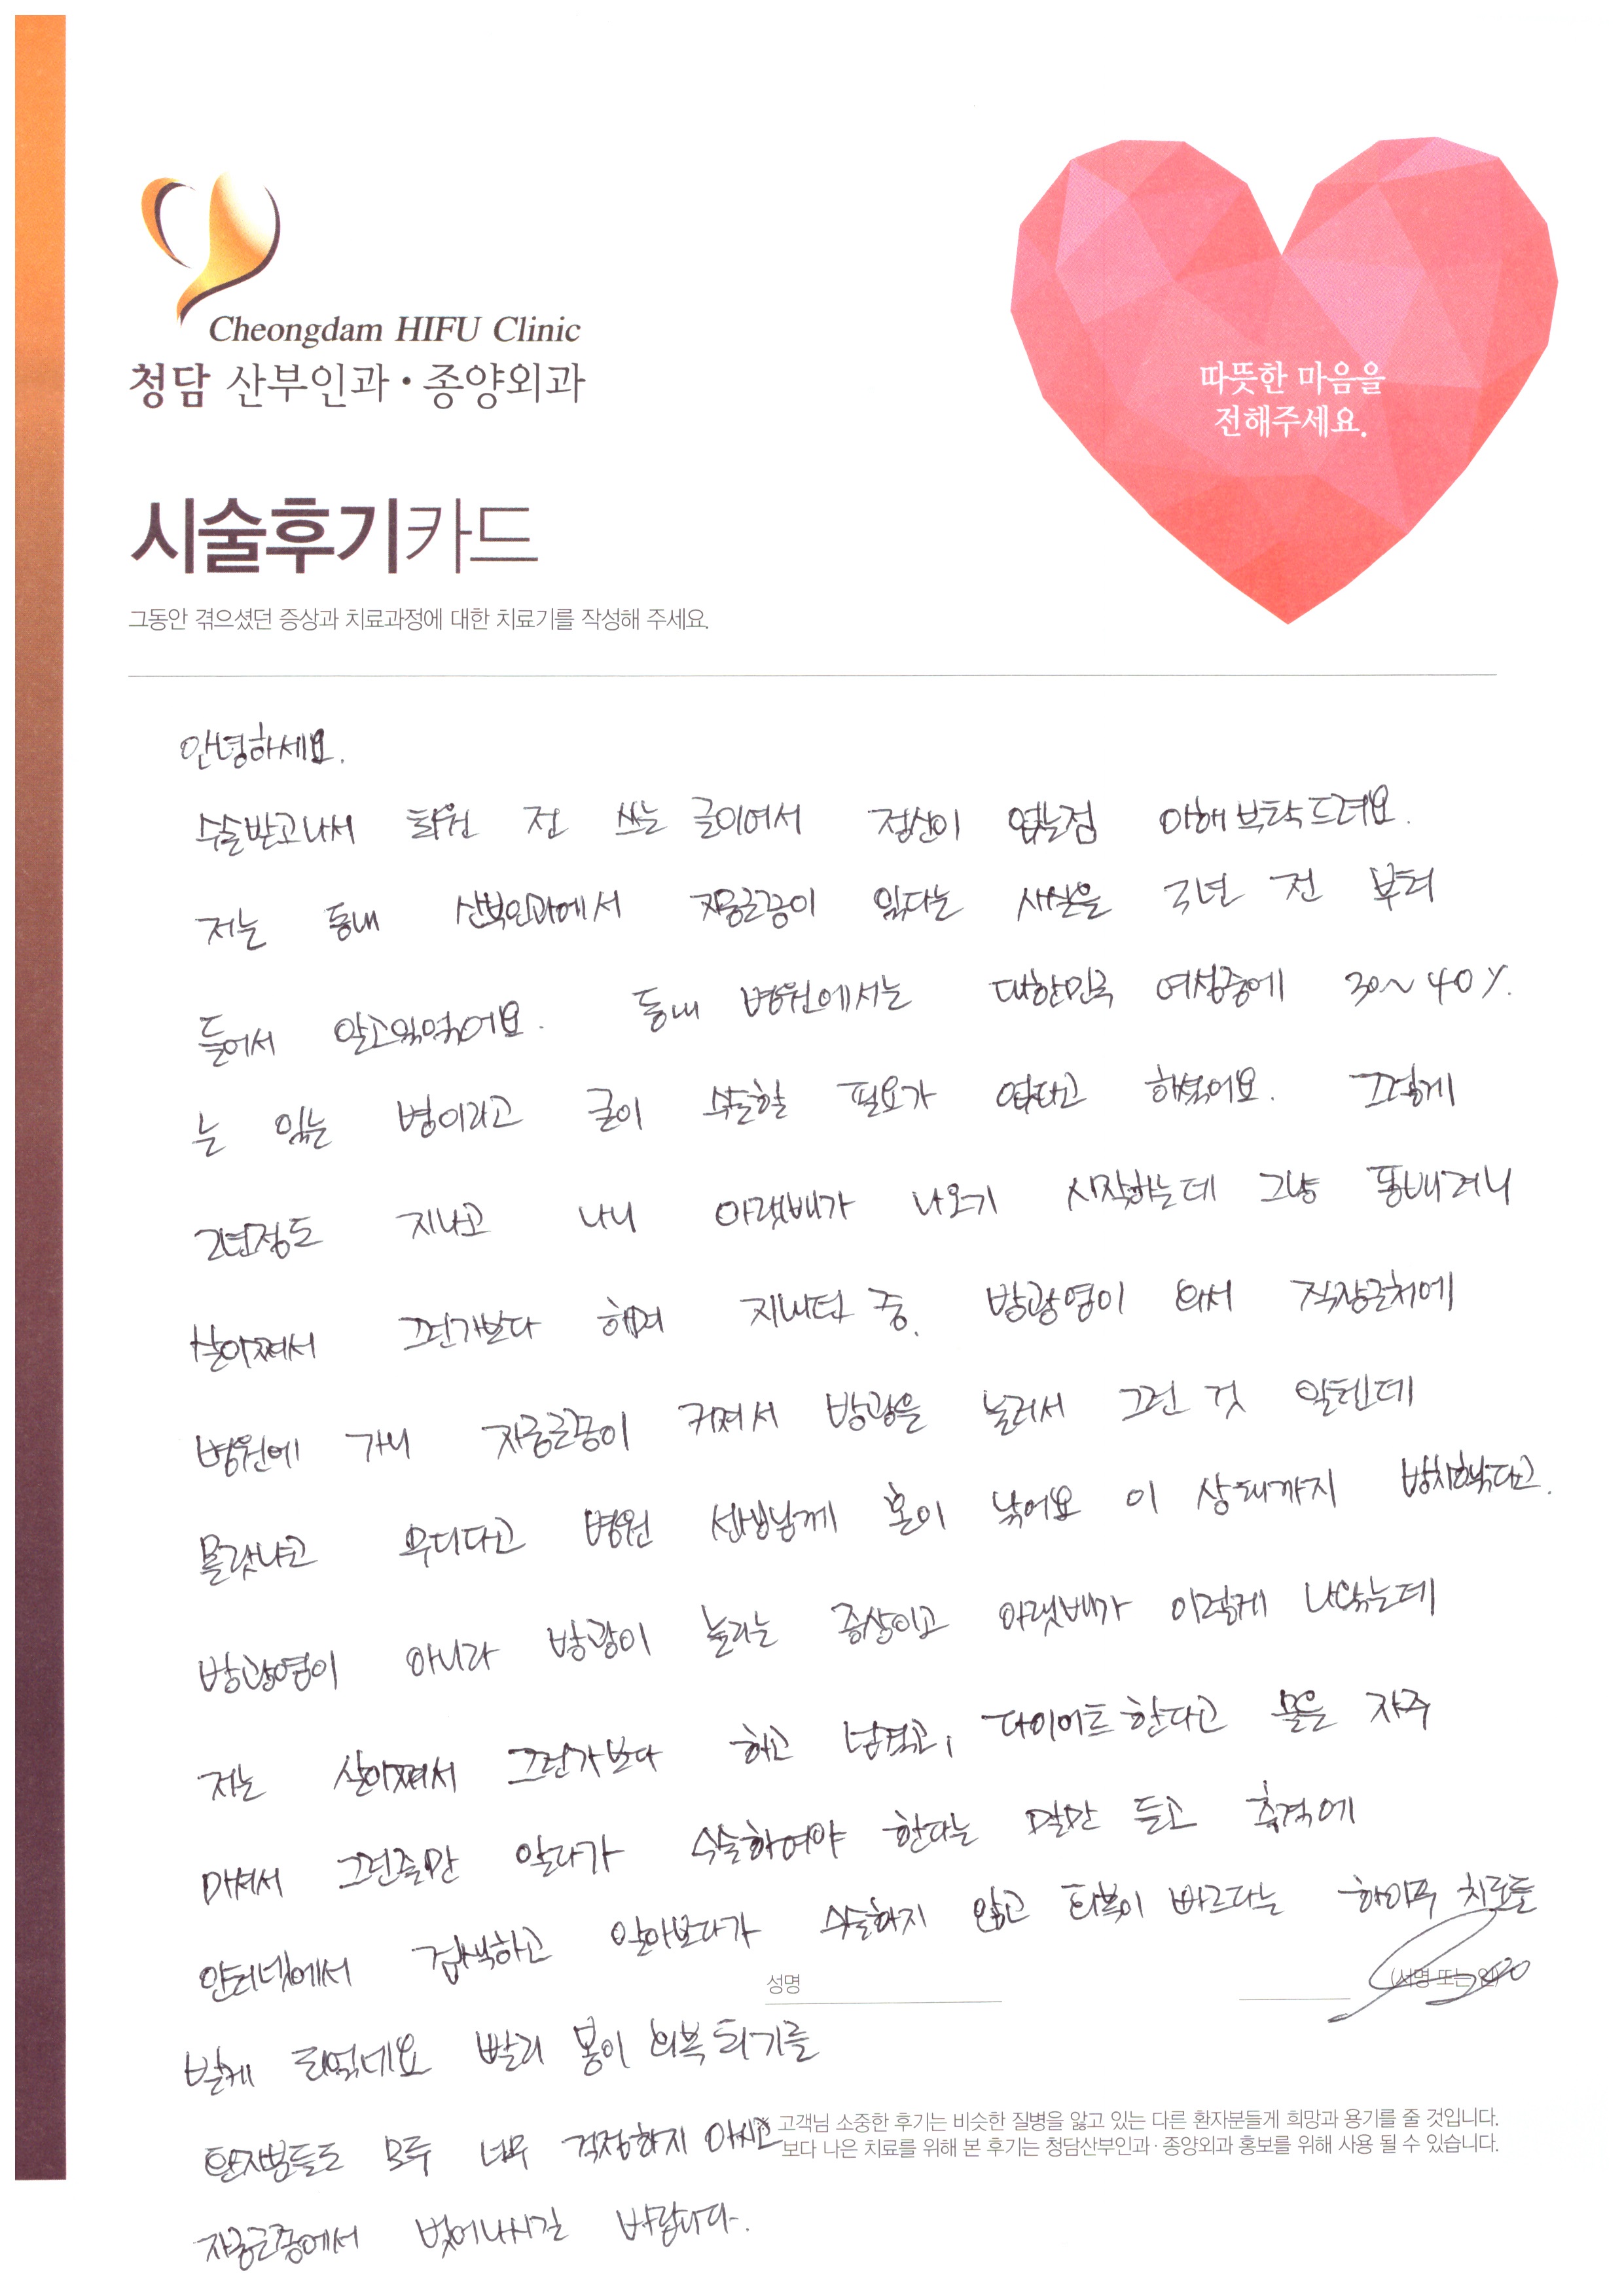 Cheongdam HIFU Clinic
청담 산부인과·종양외과
따뜻한 마음을
전해주세요.
시술후기카드
그동안 겪으셨던 증상과 치료과정에 대한 치료기를 작성해 주세요.
안녕하세요.
수술받고나서 회원 전 쓰는 글이여서 정신이 없는점 이해 부탁드려요.
저는 동내 산부인과에서 자궁근종이 있다는 사실을 3년 전 부터
들어서 알고있었어요. 동내 병원에서는 대한민국 여성중에 30~40%
는 있는 병이라고 굳이 수술할 필요가 없다고 하셨어요. 그렇게
2년정도 지나고 나니 아랫배가 나오기 시작하는데 그냥 똥배려니
살이쪄서 그런가보다 하며 지내던 중. 방광염이 와서 직장근처에
병원에 가니 자궁근종이 커져서 방광을 눌러서 그런 것 일텐데
몰랐냐고 무디다고 병원 선생님께 혼이 났어요 이 상태까지 방치했다고.
방광염이 아니라 방광이 눌리는 증상이고 아랫배가 이렇게 나왔는데
저는 살이쪄서 그런가보다 하고 넘겼고, 다이어트한다고 물을 자주
마셔서 그런줄만 알다가 수술하여야 한다는 말만 듣고 충격에
인터넷에서 검색하고 알아보다가 수술하지 않고 회복이 빠르다는 하이푸 치료를
성명 (서명 또는 인)
받게 되었네요 빨리 몸이 회복 되기를
환자분들도 모두 너무 걱정하지 마시고
※ 고객님 소중한 후기는 비슷한 질병을 앓고 있는 다른 환자분들게 희망과 용기를 줄 것입니다.
보다 나은 치료를 위해 본 후기는 청담산부인과·종양외과 홍보를 위해 사용 될 수 있습니다.
자궁근종에서 벗어나시길 바랍니다.